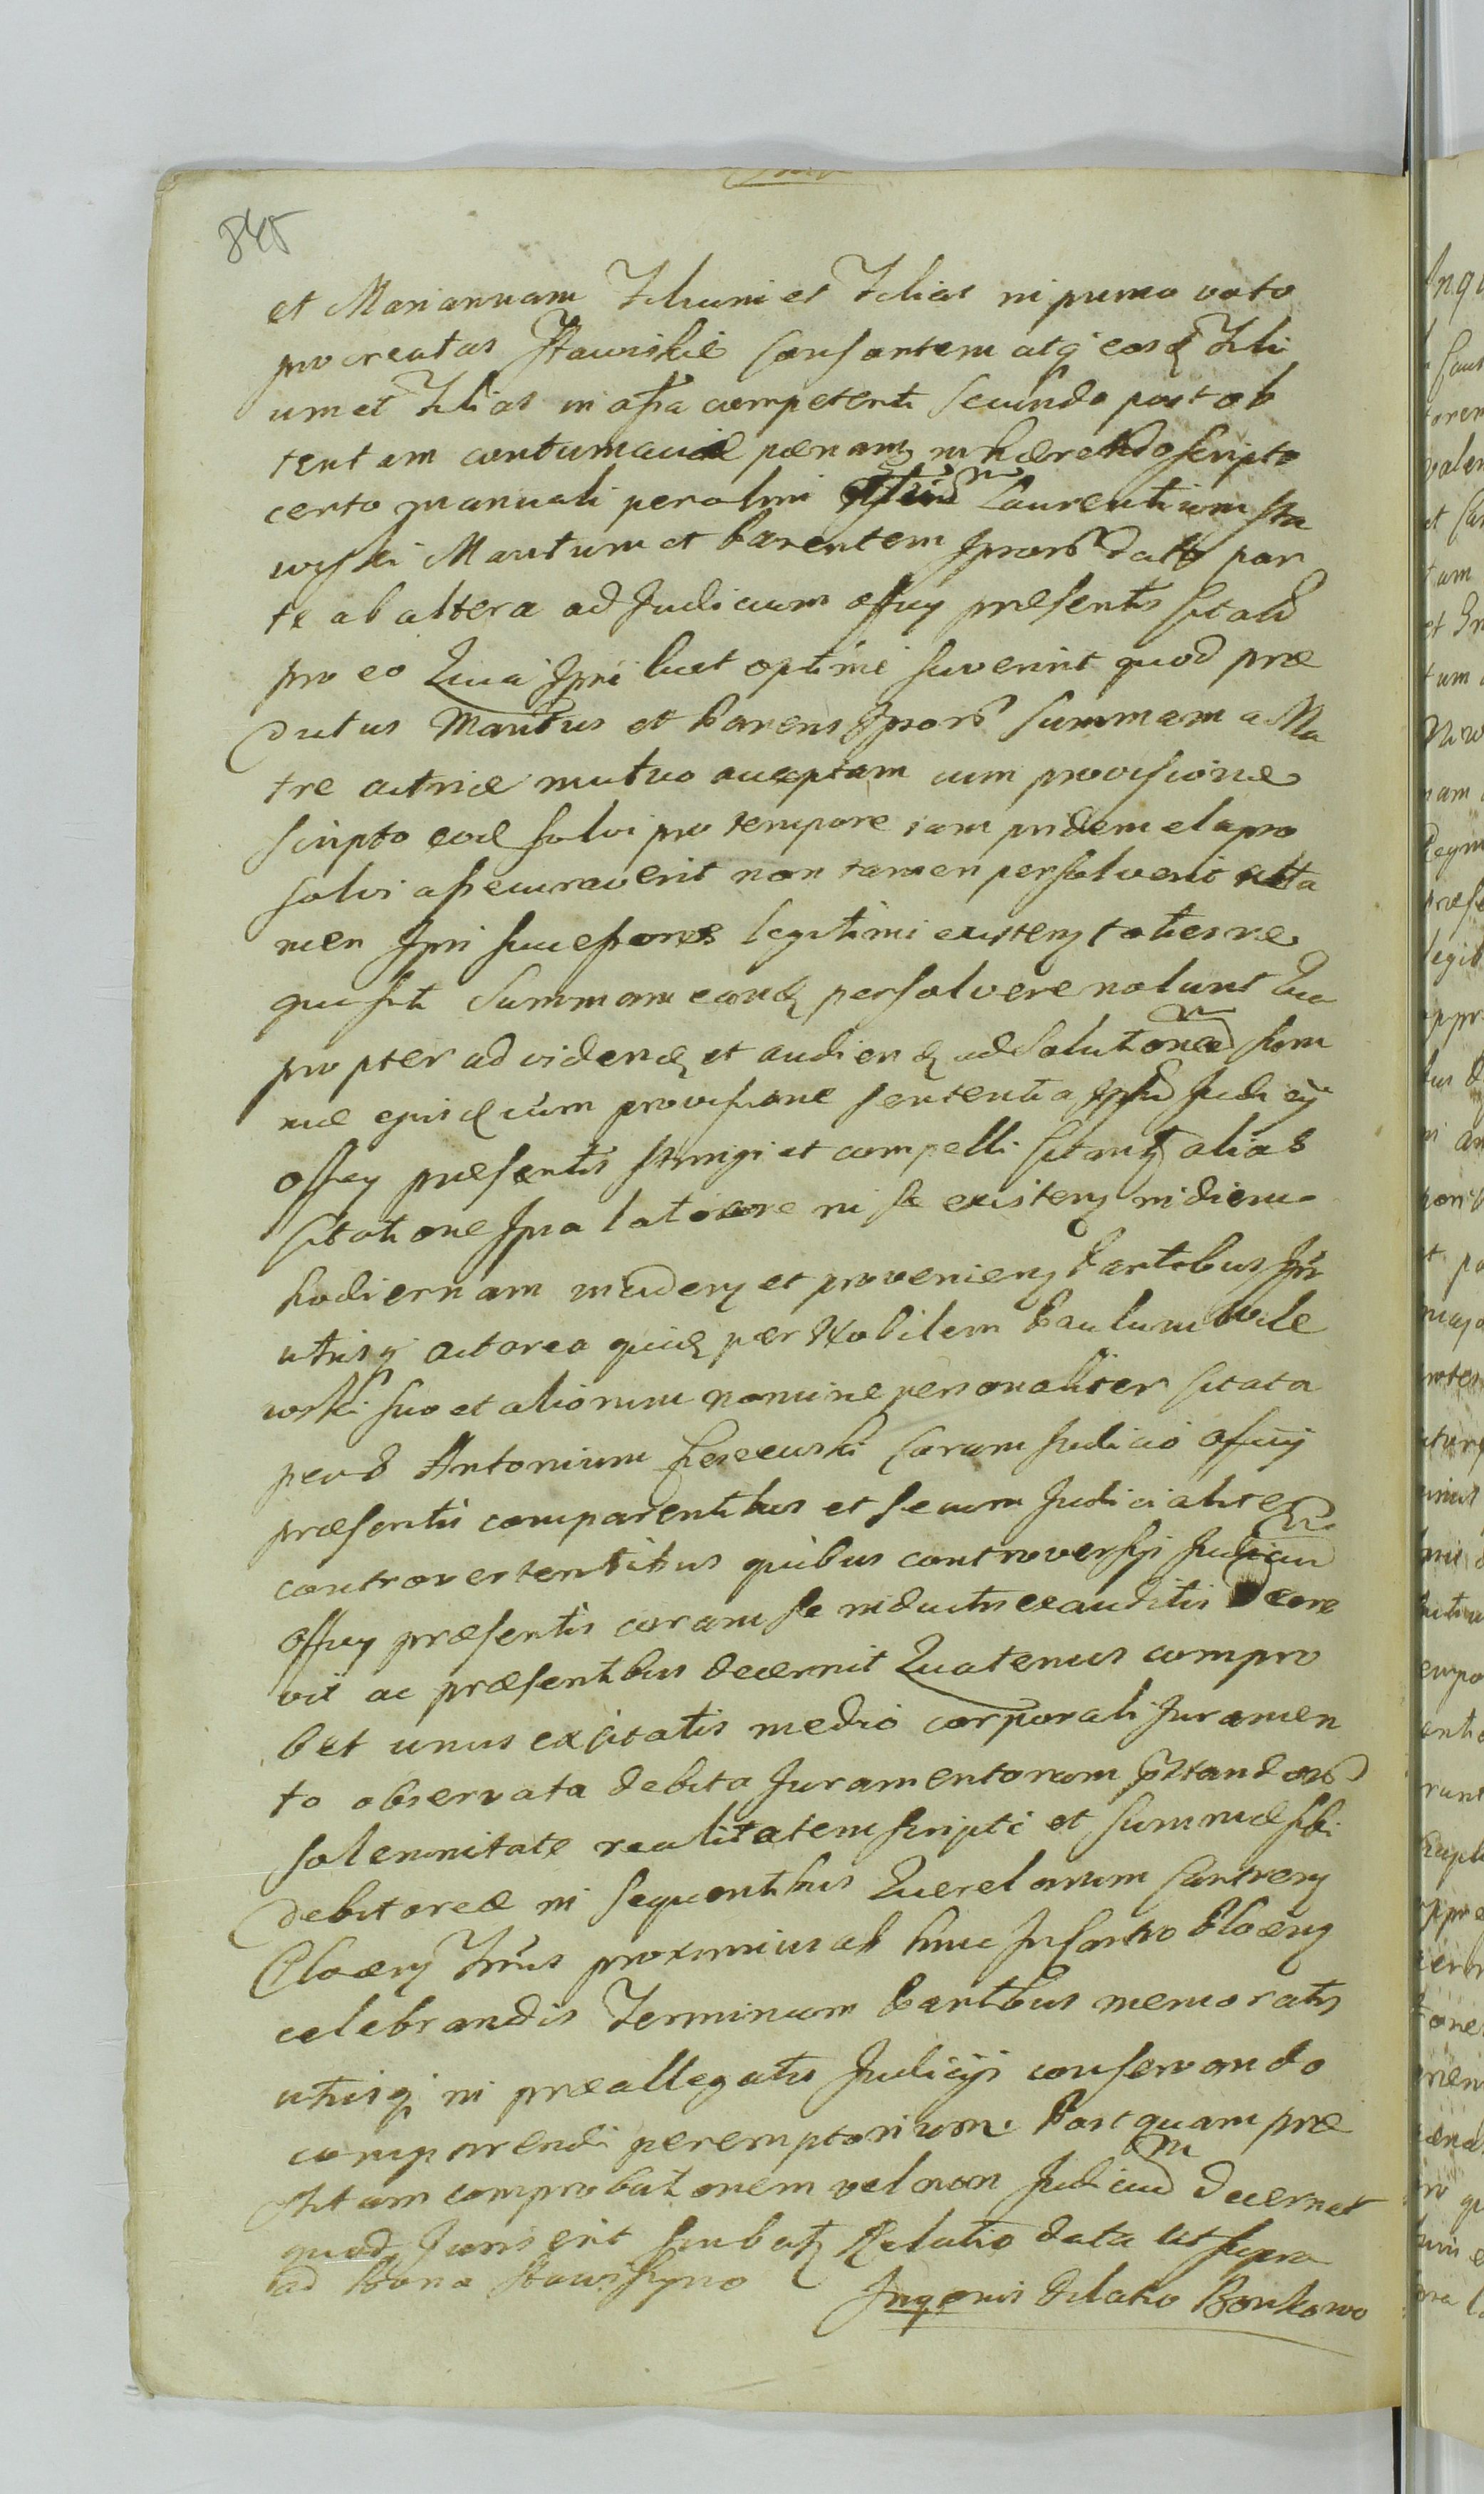 845
et Mariannam Filium et Filias in primo voto
procreatas Stawiskie Consortem atq eosd Fili
um et Filias in assa competenti Secundo post ob
tentam contumaciae paenam inhaerendo scripto
certo manuali per olim Laurentium Sta
wski Maritum et Parentem Ipsorum dato par
te ab altera ad Judicium officy praesentis Citatos
pro eo Quia Ipsi licet optime sciverint quod prae
dictus Maritus et Parens Ipsorum Summam a Ma
tre actricae mutuo acceptam cum provisione
scripto eod solvi pro tempore iam pridem elapso
solvi assecuraverit non tamen persolverit atta
men Ipsi successores legitimi existen toties re
quisiti Summam eand persolvere nolunt Qua
propter ad videnđ et audienđ ad solutionem sum
mae ejusd cum provisione sententia Ipsius Judicy
officy praesentis stringi et compelli Citant alias
Citatione Ipsa latiore in se existen in diem
hodiernam inciden et provenien Partibus Ipsis
utrisq actorea quid per Nobilem Paulum Wile
wski suo et aliorum nomine personaliter Citata
pero Antonium Coram Judicio officij
praesenti comparentibus et secum Judicialiter
controvertentibus quibus controversijs Judicium
officy praesentis coram se inductis exauditis Decre
vit ac praesentibus decernit Quatenus compro
bet unus ex citatis medio corporali Juramen
to observata debita Juramentorum praestandorum
solemnitate realitatem scripti et summae sibi
debitoreae in sequentibus Querelarum Castren
Ploćen Tertis proximius ab hinc In Castro Ploćen
celebrandis Terminum Partibus memoratis
utrisq in praeallegatis Judicijs conservando
comparendi peremptorium Postquam prae
stitam comprobationem vel non Judicium Decernet
quod Juris erit Relatio data ut supra
ad Bona
Ingenis Delatio Bonkowo